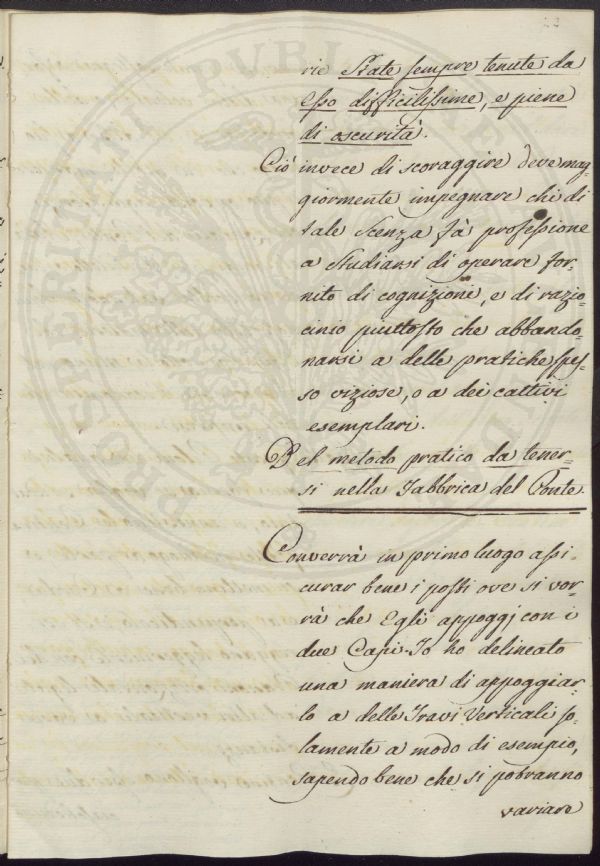 rie State sempre tenute da
esso difficilissime, e piene
di oscurità.
Ciò invece di scoraggire deve mag=
giormente impegnare chi di
tale Scenza fà professione
a studiarsi di operare for=
nito di cognizione, e di razio=
cinio piuttosto che abbando=
narsi a delle pratiche spes=
so viziose, o a dei cattivi
esemplari.
Del metodo pratico da tener=
si nella Fabbrica del Ponte.
Converrà in primo luogo assi=
curar bene i posti ove si vor=
rà che Egli appoggj con i
due Capi. Io ho delineato
una maniera di appoggiar=
lo a delle Travi Verticali so=
lamente a modo di esempio,
sapendo bene che si potranno
variare
PROSPERITATI PUBLICAE